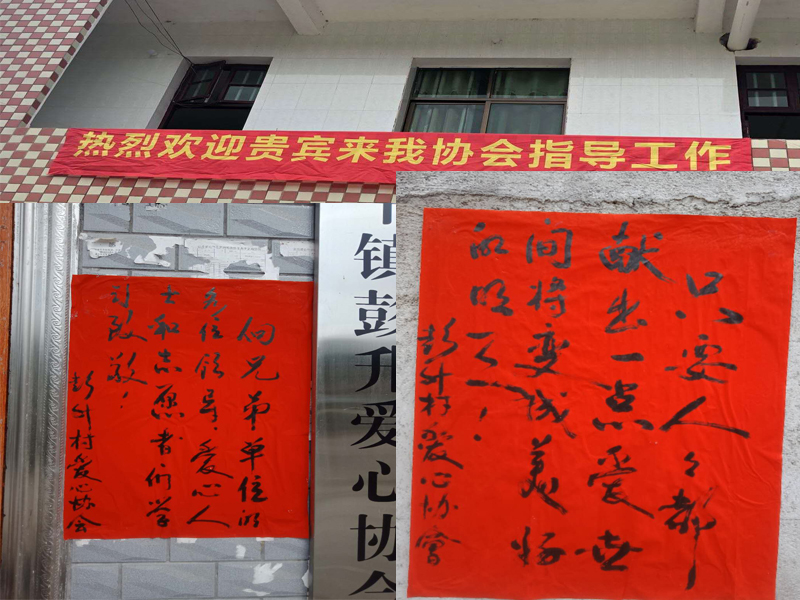 热烈欢迎贵宾来我协会指导工作
向兄弟单位的
各位领导、爱心人
士和志愿者们学
习致敬！
彭升村爱心协会
镇彭升爱心协会
只要人々都
献出一点爱世
间将变成美好
的明天！
彭升村爱心协會